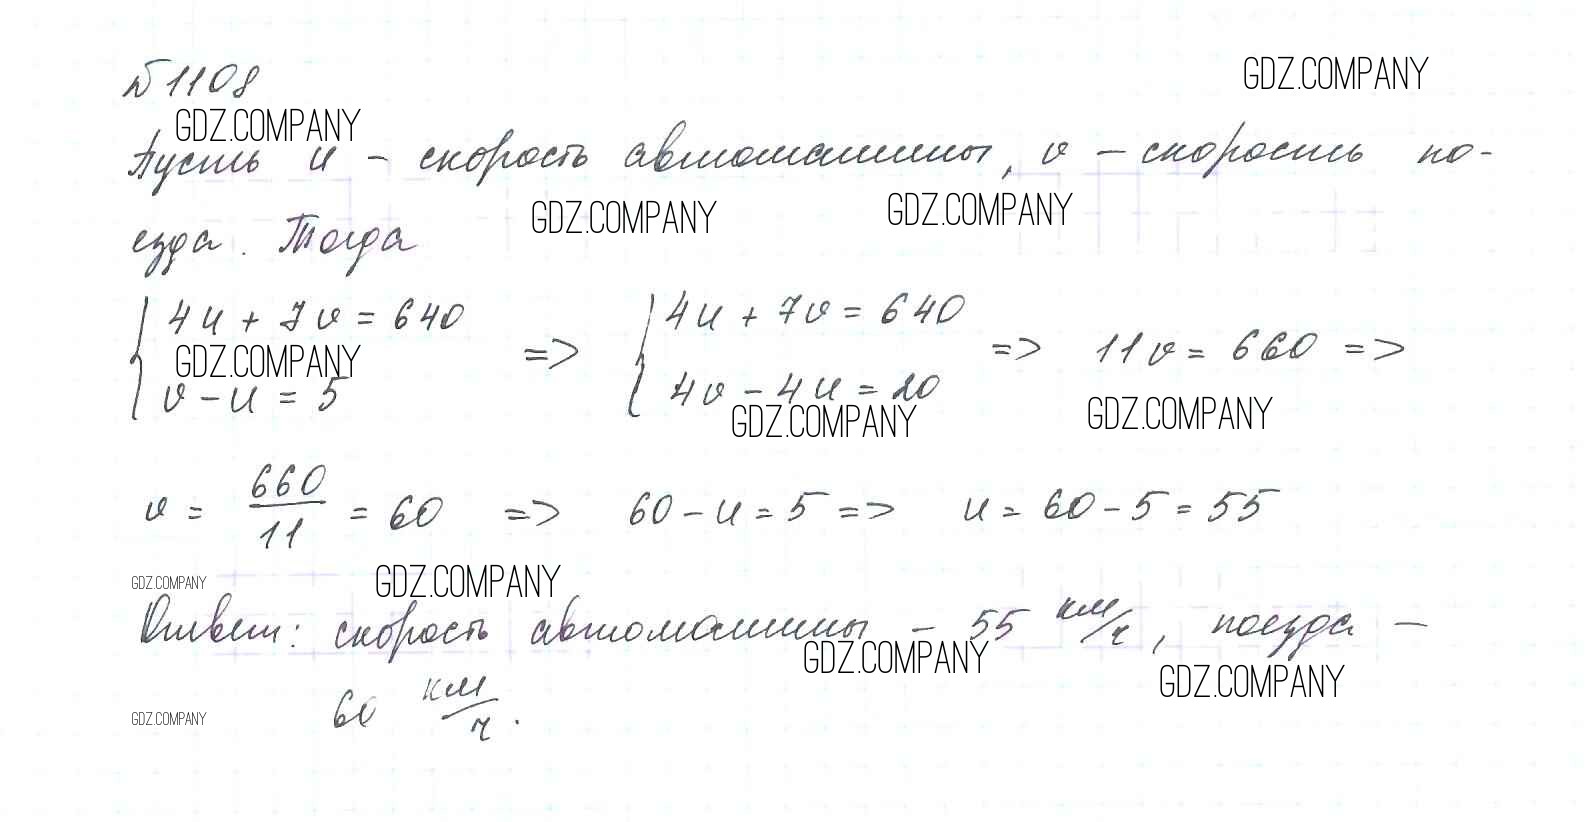 №1108
GDZ.COMPANY
GDZ.COMPANY
Пусть u – скорость автомашины, v – скорость по-
GDZ.COMPANY
GDZ.COMPANY
езда. Тогда
4u + 7v = 640
GDZ.COMPANY
v – u = 5
=>
4u + 7v = 640
4v – 4u = 20
GDZ.COMPANY
=> 11v = 660 =>
GDZ.COMPANY
v = 660/11 = 60 => 60 – u = 5 => u = 60 – 5 = 55
GDZ.COMPANY
GDZ.COMPANY
Ответ: скорость автомашины – 55 км/ч, поезда –
GDZ.COMPANY
GDZ.COMPANY
60 км/ч.
GDZ.COMPANY